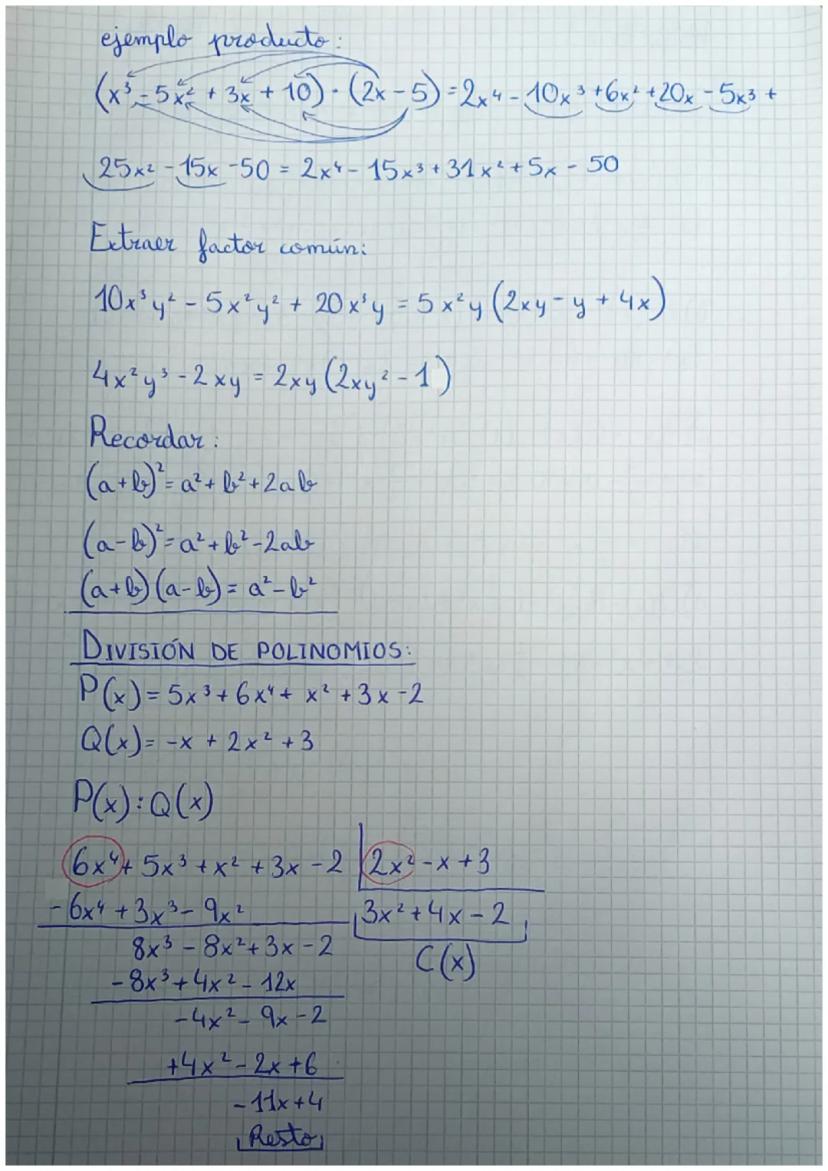 ejemplo producto:
(x³ - 5x² + 3x + 10) · (2x - 5) = 2x⁴ - 10x³ + 6x² + 20x - 5x³ +
25x² - 15x - 50 = 2x⁴ - 15x³ + 31x² + 5x - 50
Extraer factor común:
10x³y² - 5x²y² + 20x³y = 5x²y (2xy - y + 4x)
4x²y³ - 2xy = 2xy (2xy² - 1)
Recordar:
(a+b)² = a² + b² + 2ab
(a-b)² = a² + b² - 2ab
(a+b)(a-b) = a² - b²
DIVISIÓN DE POLINOMIOS:
P(x) = 5x³ + 6x⁴ + x² + 3x - 2
Q(x) = -x + 2x² + 3
P(x) : Q(x)
6x⁴ + 5x³ + x² + 3x - 2 2x² - x + 3
- 6x⁴ + 3x³ - 9x² 3x² + 4x - 2
8x³ - 8x² + 3x - 2 C(x)
- 8x³ + 4x² - 12x
- 4x² - 9x - 2
+ 4x² - 2x + 6
- 11x + 4
Resto